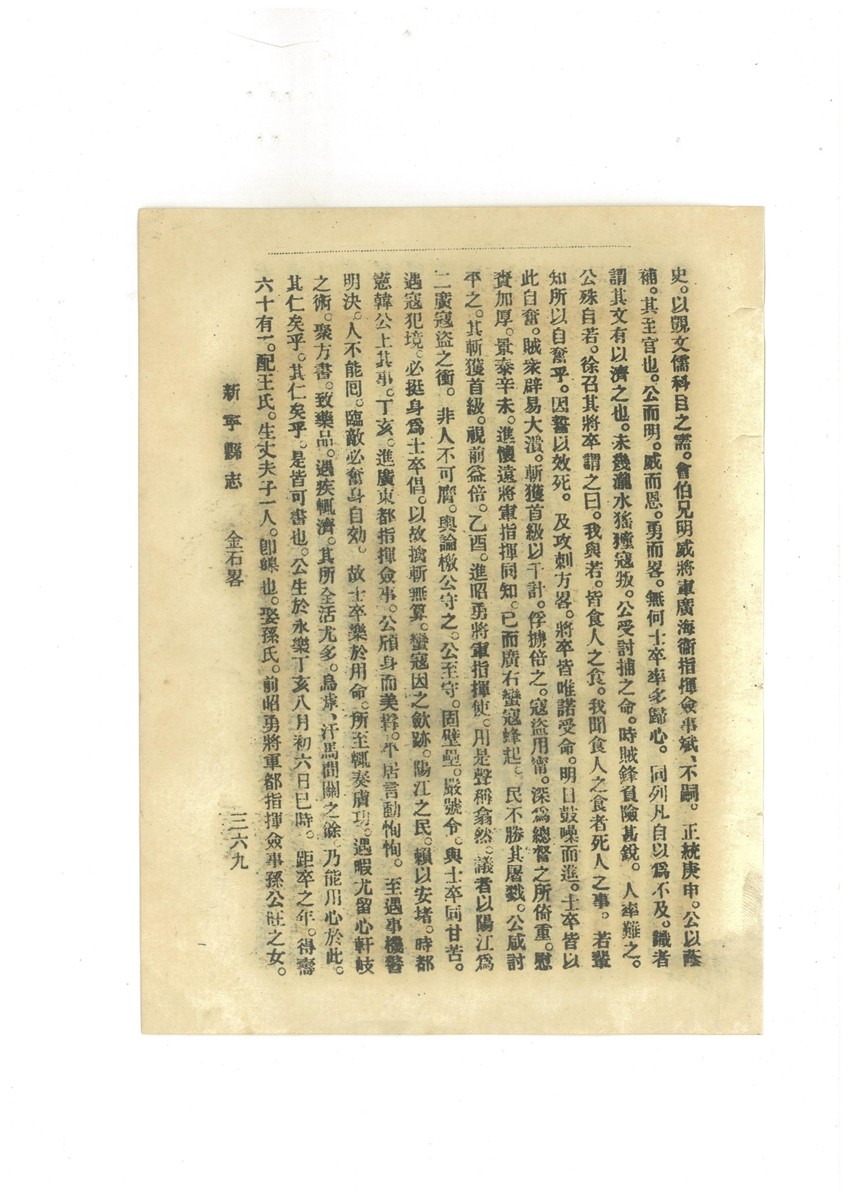 史。以覬文儒科目之需。會伯兄明威將軍廣海衞指揮僉事斌、不嗣。正統庚申。公以蔭
補。其至官也。公而明。威而恩。勇而畧。無何士卒率多歸心。同列凡自以爲不及。識者
謂其文有以濟之也。未幾瀧水猺獞寇叛。公受討捕之命。時賊鋒負險甚銳。人率難之。
公殊自若。徐召其將卒謂之曰。我與若。皆食人之食。我聞食人之食者死人之事。若輩
知所以自奮乎。因誓以效死。及攻刺方畧。將卒皆唯諾受命。明日鼓噪而進。士卒皆以
此自奮。賊衆辟易大潰。斬獲首級以千計。俘擄倍之。寇盜用甯。深爲總督之所倚重。慰
賚加厚。景泰辛未。進懷遠將軍指揮同知。已而廣右蠻寇蜂起。民不勝其屠戮。公咸討
平之。其斬獲首級。視前益倍。乙酉。進昭勇將軍指揮使。用是聲稱翕然。議者以陽江爲
二廣寇盜之衝。非人不可膺。輿論檄公守之。公至守。固壁壘。嚴號令。與士卒同甘苦。
遇寇犯境。必挺身爲士卒倡。以故擒斬無算。蠻寇因之斂跡。陽江之民。賴以安堵。時都
憲韓公上其事。丁亥。進廣東都指揮僉事。公頎身而美髯。平居言動恂恂。至遇事機警
明決。人不能囘。臨敵必奮身自効。故士卒樂於用命。所至輒奏膚功。遇暇尤留心軒岐
之術。聚方書。致藥品。遇疾輒濟。其所全活尤多。烏虖、汗馬間關之餘。乃能用心於此。
其仁矣乎。其仁矣乎。是皆可書也。公生於永樂丁亥八月初六日巳時。距卒之年。得壽
六十有一。配王氏。生丈夫子一人。卽也。娶孫氏。前昭勇將軍都指揮僉事孫公旺之女。
新寧縣志 金石畧 三六九